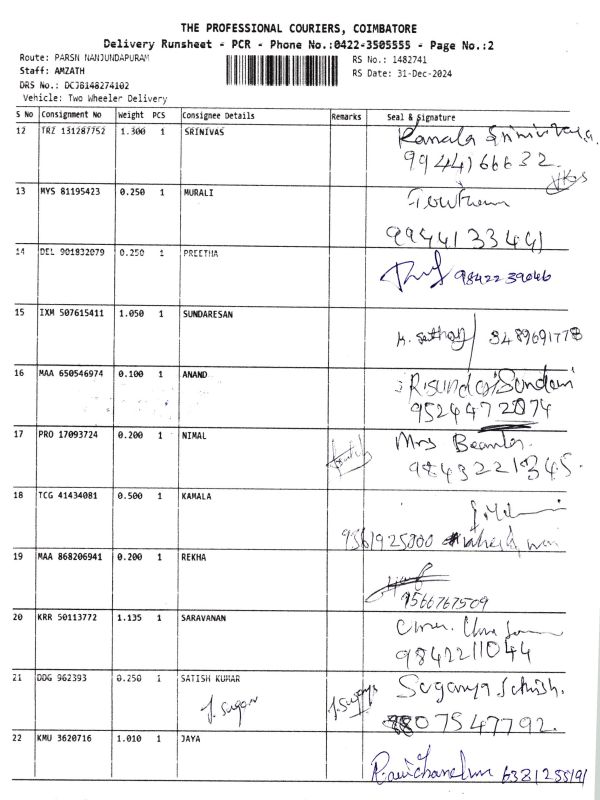 THE PROFESSIONAL COURIERS, COIMBATORE
Delivery Runsheet - PCR - Phone No.:0422-3505555 - Page No.:2
Route: PARSN NANJUNDAPURAM
RS No.: 1482741
Staff: AMZATH
RS Date: 31-Dec-2024
DRS No.: DCJB148274102
Vehicle: Two Wheeler Delivery
S No Consignment No Weight PCS Consignee Details Remarks Seal & Signature
12 TRZ 131287752 1.300 1 SRINIVAS Kamala
9944166632
13 MYS 81195423 0.250 1 MURALI
9944133441
14 DEL 901832079 0.250 1 PREETHA 9842239046
15 IXM 507615411 1.050 1 SUNDARESAN
K. Sathay
16 MAA 650546974 0.100 1 ANAND
9524472074
17 PRO 17093724 0.200 1 NIMAL Mrs
18 TCG 41434081 0.500 1 KAMALA
19 MAA 868206941 0.200 1 REKHA
9566767509
20 KRR 50113772 1.135 1 SARAVANAN
9842211044
21 DDG 962393 0.250 1 SATISH KUMAR Suganya Sathish.
J. Sugan J. Suganya
8807547792.
22 KMU 3620716 1.010 1 JAYA
Ravichandran